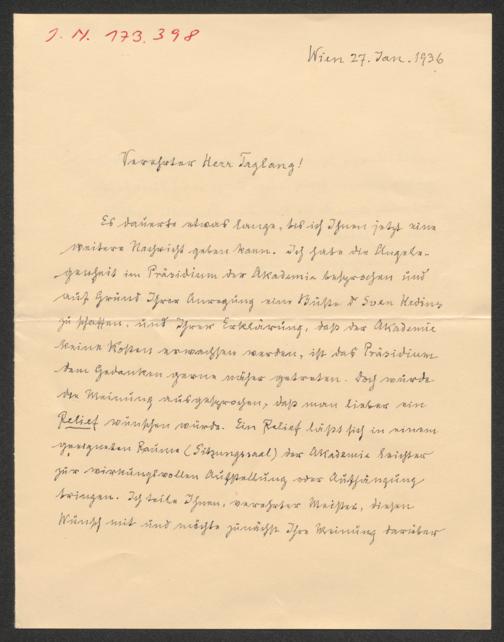 J. N. 173.398
Wien 27. Jan. 1936
Verehrter Herr Taglang!
Es dauerte etwas lange, bis ich Ihnen jetzt eine
weitere Nachricht geben kann. Ich habe die Angele-
genheit im Präsidium der Akademie besprochen und
auf Grund Ihrer Anregung eine Büste Dr Sven Hedins
zu schaffen, und Ihrer Erklärung, daß der Akademie
keine Kosten erwachsen werden, ist das Präsidium
dem Gedanken gerne näher getreten. Doch wurde
die Meinung ausgesprochen, daß man lieber ein
Relief wünschen würde. Ein Relief läßt sich in einem
geeigneten Raume (Sitzungssaal) der Akademie leichter
zur wirkungsvollen Aufstellung oder Aufhängung
bringen. Ich teile Ihnen, verehrter Meister, diesen
Wunsch mit und möchte zunächst Ihre Meinung darüber